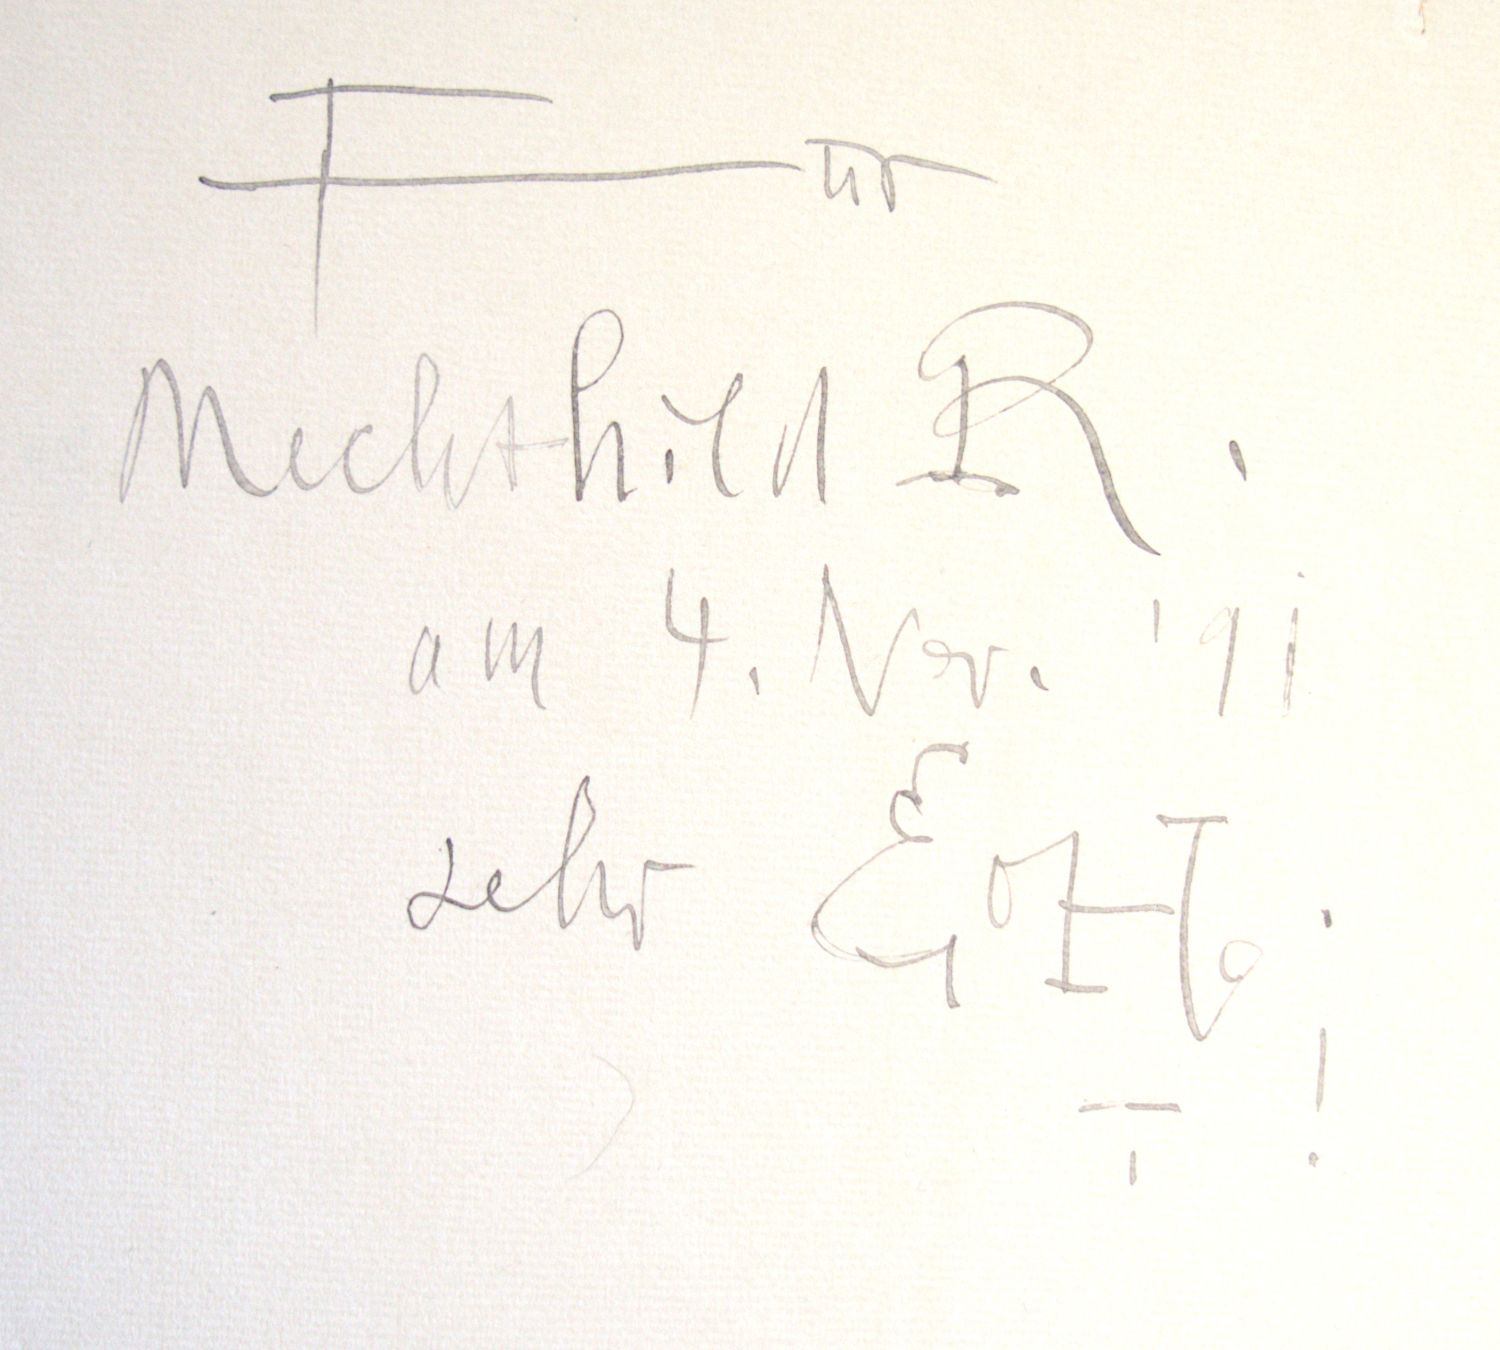 Für
Mechthild R.
am 4. Nov. '91
sehr
!